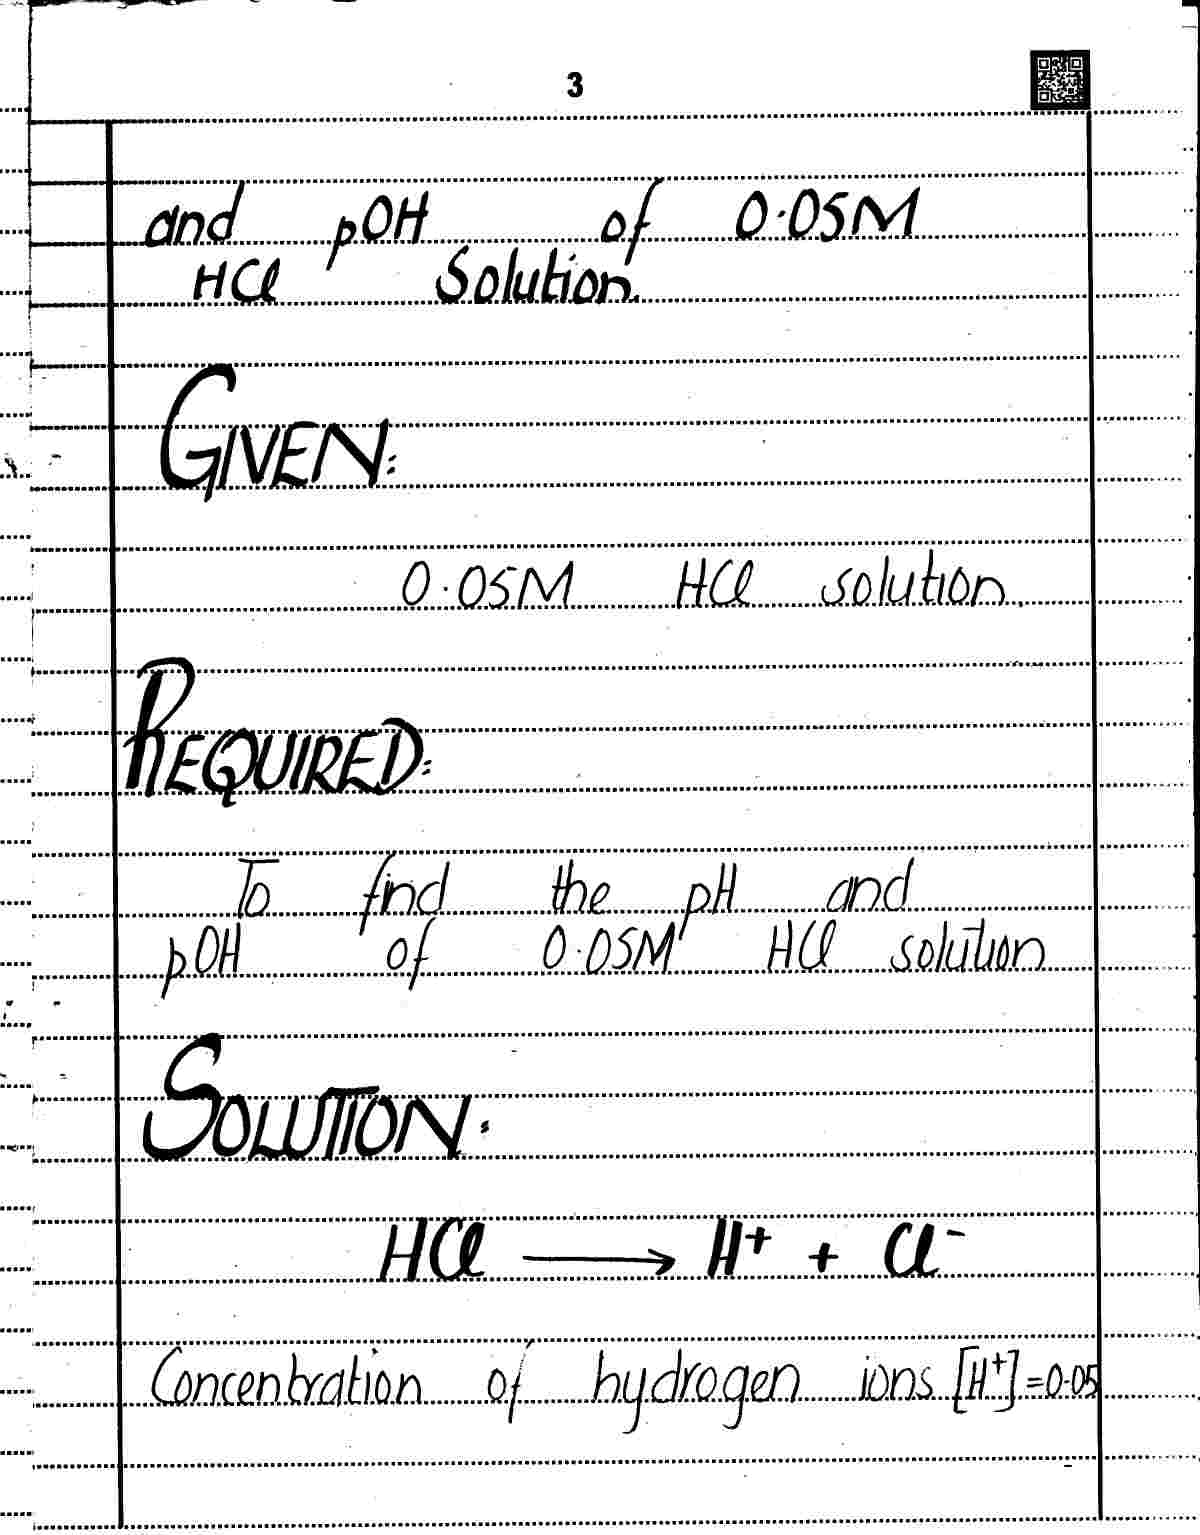 3
and pOH of 0.05M
HCl Solution.
GIVEN:
0.05M HCl solution.
REQUIRED:
To find the pH and
pOH of 0.05M HCl solution
SOLUTION:
HCl ⟶ H⁺ + Cl⁻
Concentration of hydrogen ions [H⁺] = 0.05